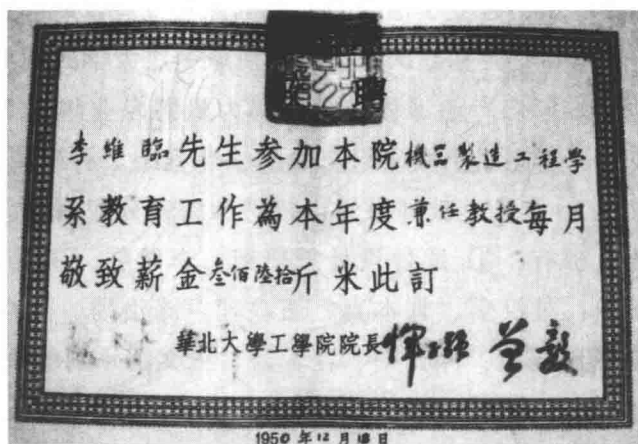 聘
李維臨先生参加本院機器製造工程學
系教育工作為本年度兼任教授每月
敬致薪金叁佰陸拾斤米此訂
華北大學工學院院長 惲子強 曾毅
1950年12月18日